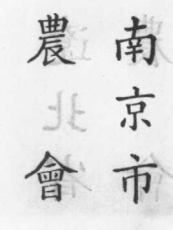 南京市
農會